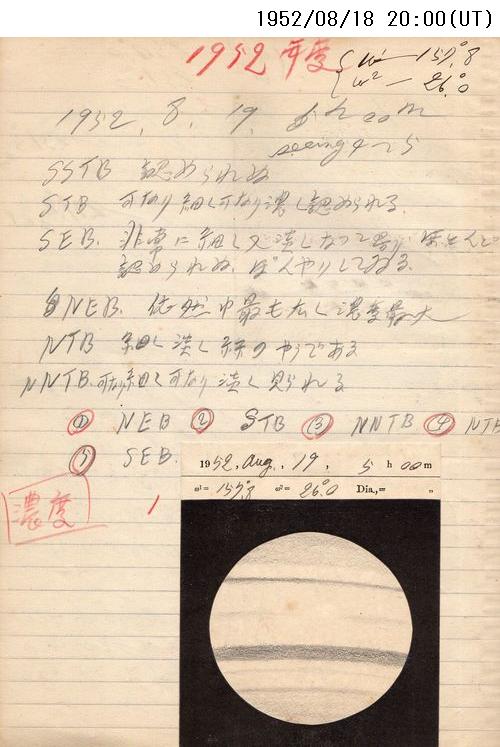 1952/08/18 20:00(UT)
1952年度 { ω¹ — 157.°8
ω² — 26.°0
1952. 8. 19. 5h 00m
seeing 4~5
SSTB 認められぬ
STB 可なり細く可なり濃く認められる.
SEB. 非常に細く又淡くなって居り
認められぬ. ぼんやりしてゐる.
NEB. 依然中最も太く濃度最大
NTB 細く淡く糸のやうである
NNTB. 可なり細く可なり淡く見られる
① NEB ② STB ③ NNTB ④ NTB
⑤ SEB.
濃度
1
1952, Aug. 19, 5 h 00 m
ω¹= 157.8 ω²= 26.°0 Dia.,= "